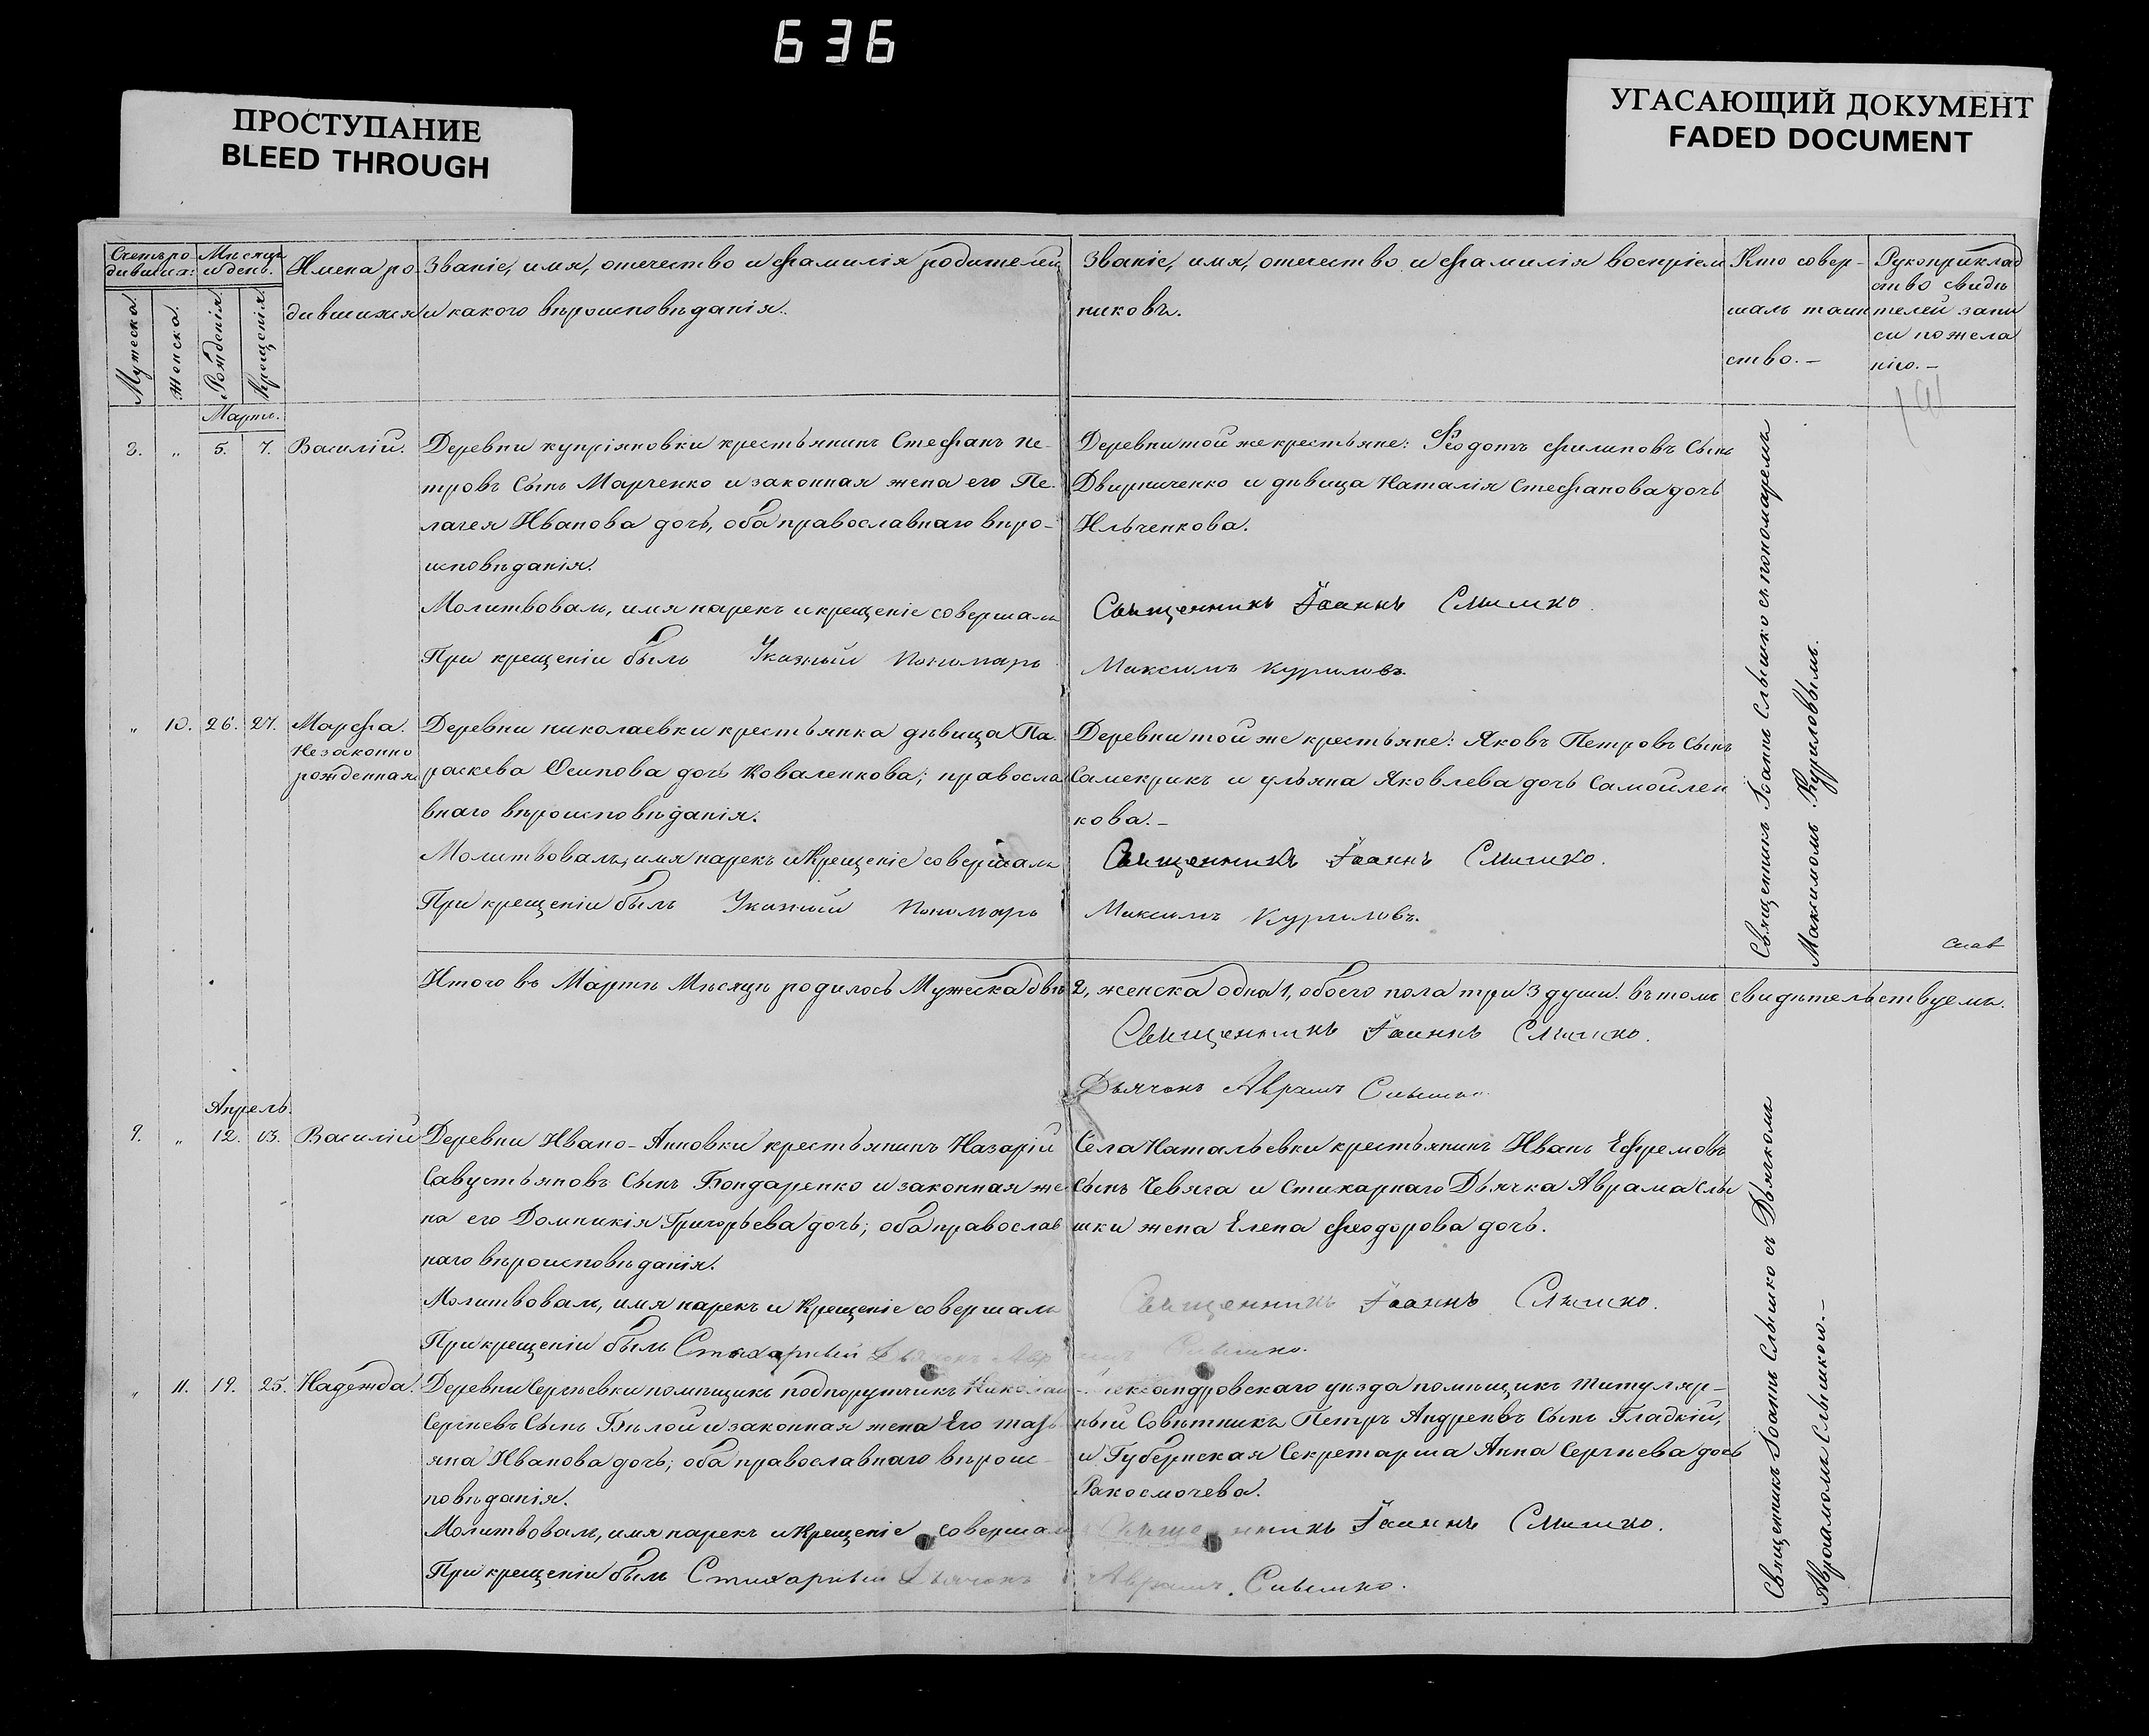 636
ПРОСТУПАНИЕ
BLEED THROUGH
УГАСАЮЩИЙ ДОКУМЕНТ
FADED DOCUMENT
Счетъ ро-
дивших:
Мужеска.
Женска.
Мѣсяцъ
и день.
Рожденія
Крещенія
Имена ро-
дившихся
Званіе, имя, отечество и фамилія родителей
и какого вѣроисповѣданія.
Званіе, имя, отечество и фамилія воспріем
никовъ.
Кто совер-
шалъ таин
ство.-
Рукоприклад
ство свидѣ
телей запи
си по жела
нію.-
Мартъ.
8. " 5. 7. Василій.
Деревни Купріяновки крестьянинъ Стефанъ Пе-
тровъ Сынъ Марченко и законная жена его Пе-
лагея Иванова дочь, оба православнаго вѣро-
исповѣданія.
Молитвовалъ, имя нарекъ и крещеніе совершалъ
При крещеніи былъ Указный Пономарь
Деревни той же крестьяне: Феодотъ Филиповъ Сынъ
Двирниченко и дѣвица Наталія Стефанова дочь
Ильченкова.
Священникъ Іоаннъ Слышко.
Максимъ Куриловъ.
" 10. 26. 27. Марфа.
Незаконно
рожденная
Деревни Николаевки крестьянка дѣвица Па-
раскева Осипова дочь Коваленкова; правосла
внаго вѣроисповѣданія.
Молитвовалъ, имя нарекъ и Крещеніе совершалъ
При крещеніи былъ Указный Пономарь
Деревни той же крестьяне: Яковъ Петровъ Сынъ
и Ульяна Яковлева дочь Самойлен
кова.-
Священникъ Іоаннъ Слышко.
Максимъ Куриловъ.
Священникъ Іоаннъ Слышко съ пономаремъ
Максимомъ Куриловымъ.
Итого въ Мартѣ Мѣсяцѣ родилось Мужеска двѣ 2, женска одна 1, обоего пола три 3 души. въ томъ свидѣтельствуемъ.
Священникъ Іоаннъ Слышко.
Дьячокъ Аврамъ Слышко
Апрель.
9. " 12. 13. Василій
Деревни Ивано-Анновки крестьянинъ Назарій
Савустьяновъ Сынъ Бондаренко и законная же
на его Домникія Григорьева дочь; оба православ
наго вѣроисповѣданія.
Молитвовалъ, имя нарекъ и Крещеніе совершалъ
При крещеніи былъ Стихарный Дьячокъ Аврамъ Слышко.
Села Натальевки крестьянинъ Иванъ Ефремовъ
Сынъ Чевяга и Стихарнаго Дьячка Аврама Слы
шки жена Елена Феодорова дочь.
Священникъ Іоаннъ Слышко.
" 11. 19. 25. Надежда.
Деревни Сергѣевки помѣщикъ подпорутчикъ Николай
Сергѣевъ Сынъ Бѣлой и законная жена Его Тать
яна Иванова дочь; оба православнаго вѣроис-
повѣданія.
Молитвовалъ, имя нарекъ и Крещеніе совершалъ
При крещеніи былъ Стихарный Дьячокъ
Александровскаго уѣзда помѣщикъ Титуляр-
ный Совѣтникъ Петръ Андреевъ Сынъ Гладкій,
и Губернская Секретарша Анна Сергѣева дочь
Священникъ Іоаннъ Слышко.
Аврамъ Слышко.
Священникъ Іоаннъ Слышко съ Дьячкомъ
Авраамомъ Слышкою.-